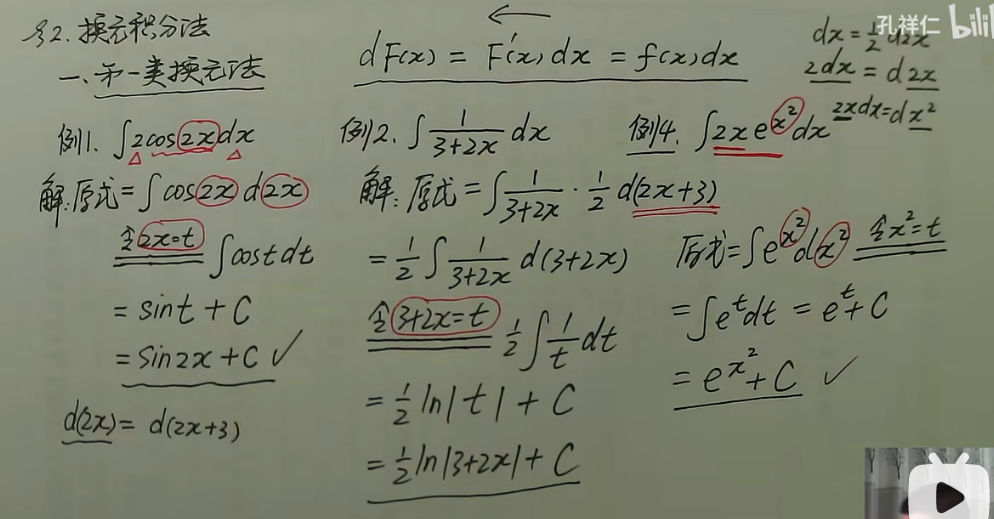 §2. 换元积分法
一、第一类换元法
dF(x) = F′(x)dx = f(x)dx
孔祥仁 bili
dx = 1/2 d2x
2dx = d2x
2xdx = dx²
例1. ∫2cos2xdx
解:原式 = ∫cos2x d2x
令2x=t ∫cost dt
= sint + C
= sin2x + C ✓
d(2x) = d(2x+3)
例2. ∫ 1/(3+2x) dx
解:原式 = ∫ 1/(3+2x) · 1/2 d(2x+3)
= 1/2 ∫ 1/(3+2x) d(3+2x)
令3+2x=t 1/2 ∫ 1/t dt
= 1/2 ln|t| + C
= 1/2 ln|3+2x| + C
例4. ∫2x e^x² dx
原式 = ∫e^x² dx² 令x²=t
= ∫e^t dt = e^t + C
= e^x² + C ✓